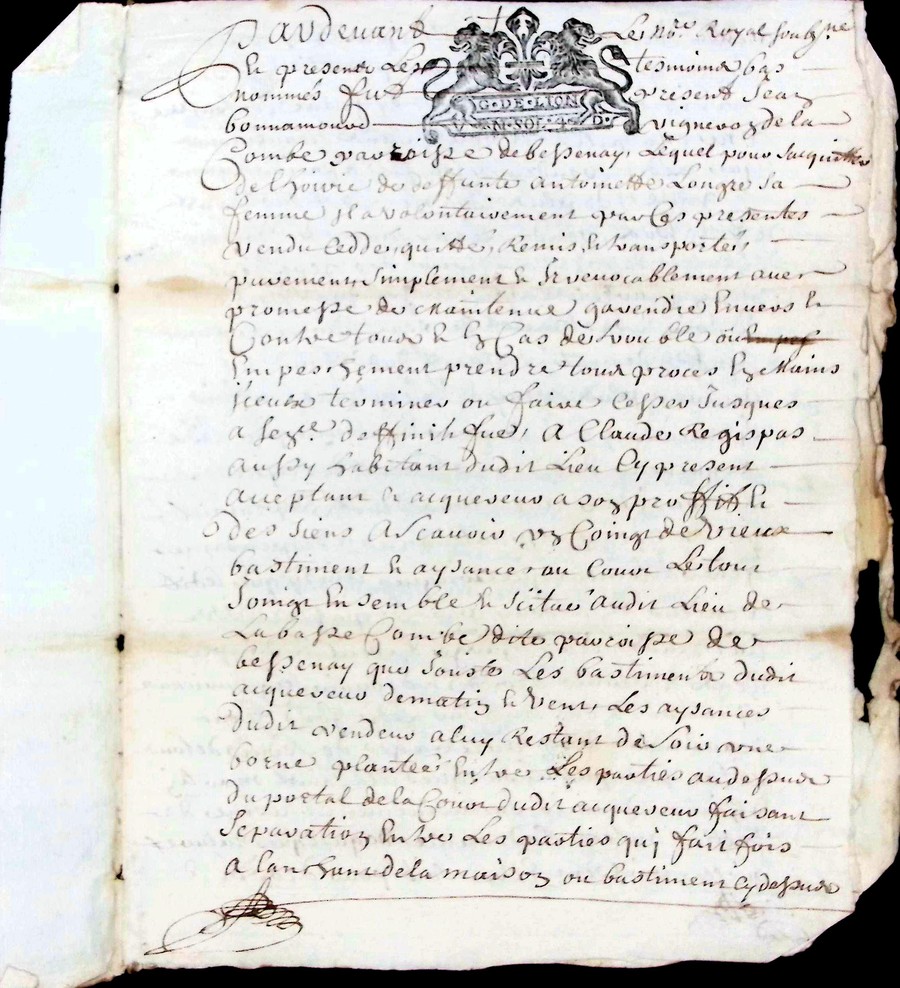 Pardevant Le No.re Royal soubz.ne
Et presents Les tesmoins bas
nommés fut present Jean
bonnamourd vigneron de la
G·DE·LION
VN·SOL·4·D·
Combe parroisse de bessenay, Lequel pour sacquitter
de lhoirie de deffunte antoinette Longre sa
femme Il a volontairement par Ces presentes
vendu cedde, quitte, Remis et transporte,
purement, simplement et Irrevocablement avec
promesse de Maintenue garendie Envers et
Contre tous et En Cas de trouble ou
Empeschement prendre tous proces En Mains
Iceux terminer ou faire cesser Jusques
a deffinitifue, A Claude Regispas
aussy habitant dudit Lieu Cy present
acceptant et acquereur a son proffit et
des siens Ascavoir un Coing de vieux
bastiment et aysance, ou Cour Le tout
Joingt Ensemble et scitue audit Lieu de
La basse Combe dite parroisse de
bessenay que Jouste Les bastiments dudit
acquereur de matin et vent, Les aysances
dudit vendeur a luy Restant de soir une
borne plantée Entre Les parties au dessus
du portal de la Cour dudit acquereur faisant
separation Entre Les parties qui fait fois
a lanchant de la maison ou bastiment cy dessus